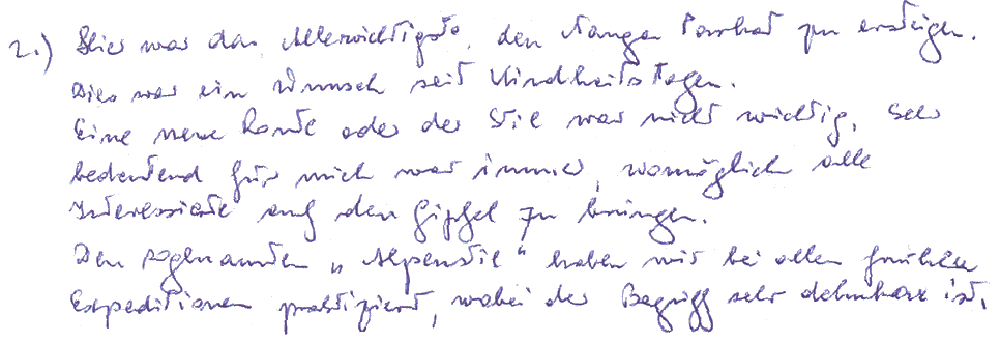 2.) Hier war das Allerwichtigste, den Nanga Parbat zu ersteigen.
Dies war ein Wunsch seit Kindheitstagen.
Eine neue Route oder der Stil war nicht wichtig. Sehr
bedeutend für mich war immer, womöglich alle
Interessierte auf den Gipfel zu bringen.
Den sogenannten „Alpenstil“ haben wir bei allen frühren
Expeditionen praktiziert, wobei der Begriff sehr dehnbar ist.